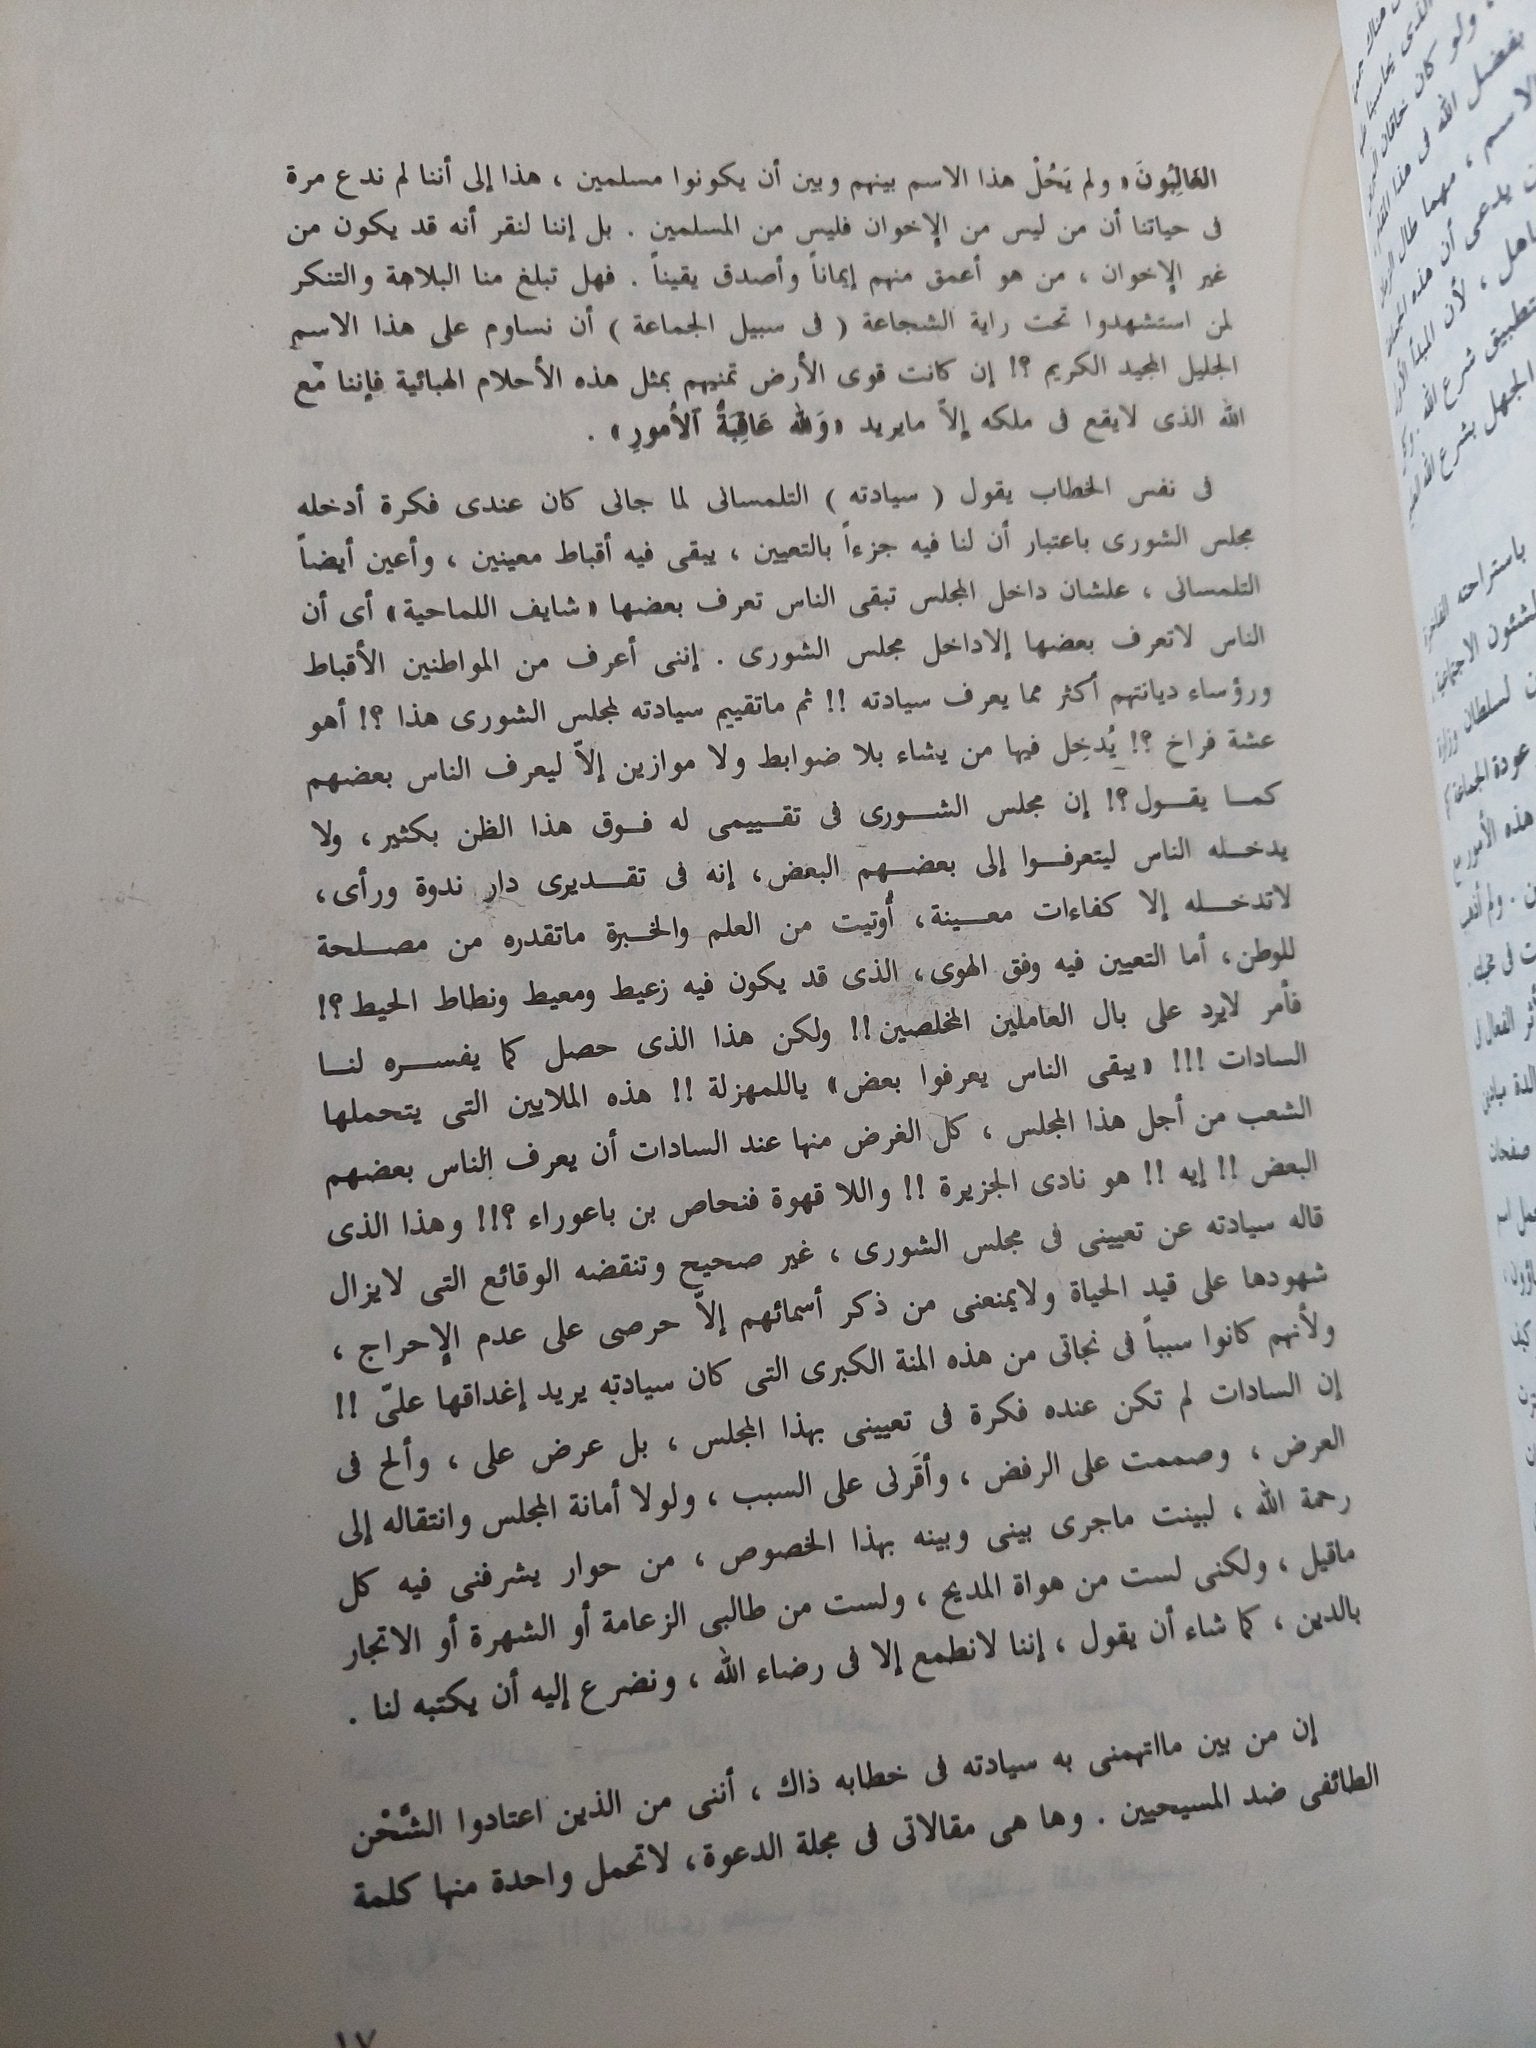 الغَالِبُونَ» ولم يَحُلْ هذا الاسم بينهم وبين أن يكونوا مسلمين ، هذا إلى أننا لم ندع مرة
فى حياتنا أن من ليس من الإخوان فليس من المسلمين . بل إننا لنقر أنه قد يكون من
غير الإخوان ، من هو أعمق منهم إيماناً وأصدق يقيناً . فهل تبلغ منا البلاهة والتنكر
لمن استشهدوا تحت راية الشجاعة ( فى سبيل الجماعة ) أن نساوم على هذا الاسم
الجليل المجيد الكريم ؟! إن كانت قوى الأرض تمنيهم بمثل هذه الأحلام الهبائية فإننا مع
الله الذى لايقع فى ملكه إلاّ مايريد «وَلله عَاقِبَةُ ٱلأُمورِ» .
فى نفس الخطاب يقول ( سيادته ) التلمسانى لما جالى كان عندى فكرة أدخله
مجلس الشورى باعتبار أن لنا فيه جزءاً بالتعيين ، يبقى فيه أقباط معينين ، وأعين أيضاً
التلمسانى ، علشان داخل المجلس تبقى الناس تعرف بعضها «شايف اللماحية» أى أن
الناس لاتعرف بعضها إلاداخل مجلس الشورى . إننى أعرف من المواطنين الأقباط
ورؤساء ديانتهم أكثر مما يعرف سيادته !! ثم ماتقييم سيادته لمجلس الشورى هذا ؟! أهو
عشة فراخ ؟! يُدخِل فيها من يشاء بلا ضوابط ولا موازين إلاّ ليعرف الناس بعضهم
كمـا يقـول؟! إن مجلس الشـورى فى تقـييمى له فـوق هذا الظن بكثير، ولا
يدخـله الناس ليتعرفـوا إلى بعضـهم البعض، إنه فى تقـديرى دار ندوة ورأى،
لاتدخـله إلا كفاءات معـينة، أُوتيت من العلم والخبرة ماتقدره من مصـلحة
للوطن، أما التعيين فيه وفق الهوى، الذى قد يكون فيه زعيط ومعيط ونطاط الحيط؟!
فأمر لايرد على بال العاملين المخلصين!! ولكن هذا الذى حصل كما يفسـره لنـا
السادات !!! «يبقى الناس يعرفوا بعض» ياللمهزلة !! هذه الملايين التى يتحملها
الشعب من أجل هذا المجلس ، كل الغرض منها عند السادات أن يعرف الناس بعضهم
البعض !! إيه !! هو نادى الجزيرة !! واللا قهوة فنحاص بن باعوراء ؟!! وهذا الذى
قاله سيادته عن تعيينى فى مجلس الشورى ، غير صحيح وتنقضه الوقائع التى لايزال
شهودها على قيد الحياة ولايمنعنى من ذكر أسمائهم إلاّ حرصى على عدم الإحراج ،
ولأنهم كانوا سبباً فى نجاتى من هذه المنة الكبرى التى كان سيادته يريد إغداقها علىّ !!
إن السادات لم تكن عنده فكرة فى تعيينى بهذا المجلس ، بل عرض على ، وألح فى
العرض ، وصممت على الرفض ، وأقَرنى على السبب ، ولولا أمانة المجلس وانتقاله إلى
رحمة الله ، لبينت ماجرى بينى وبينه بهذا الخصوص ، من حوار يشرفنى فيه كل
ماقيل ، ولكنى لست من هواة المديح ، ولست من طالبى الزعامة أو الشهرة أو الاتجار
بالدين ، كما شاء أن يقول ، إننا لانطمع إلا فى رضاء الله ، ونضرع إليه أن يكتبه لنا .
إن من بين مااتهمنى به سيادته فى خطابه ذاك ، أننى من الذين اعتادوا الشَّحْن
الطائفى ضد المسيحيين . وها هى مقالاتى فى مجلة الدعوة، لاتحمل واحدة منها كلمة
١٧